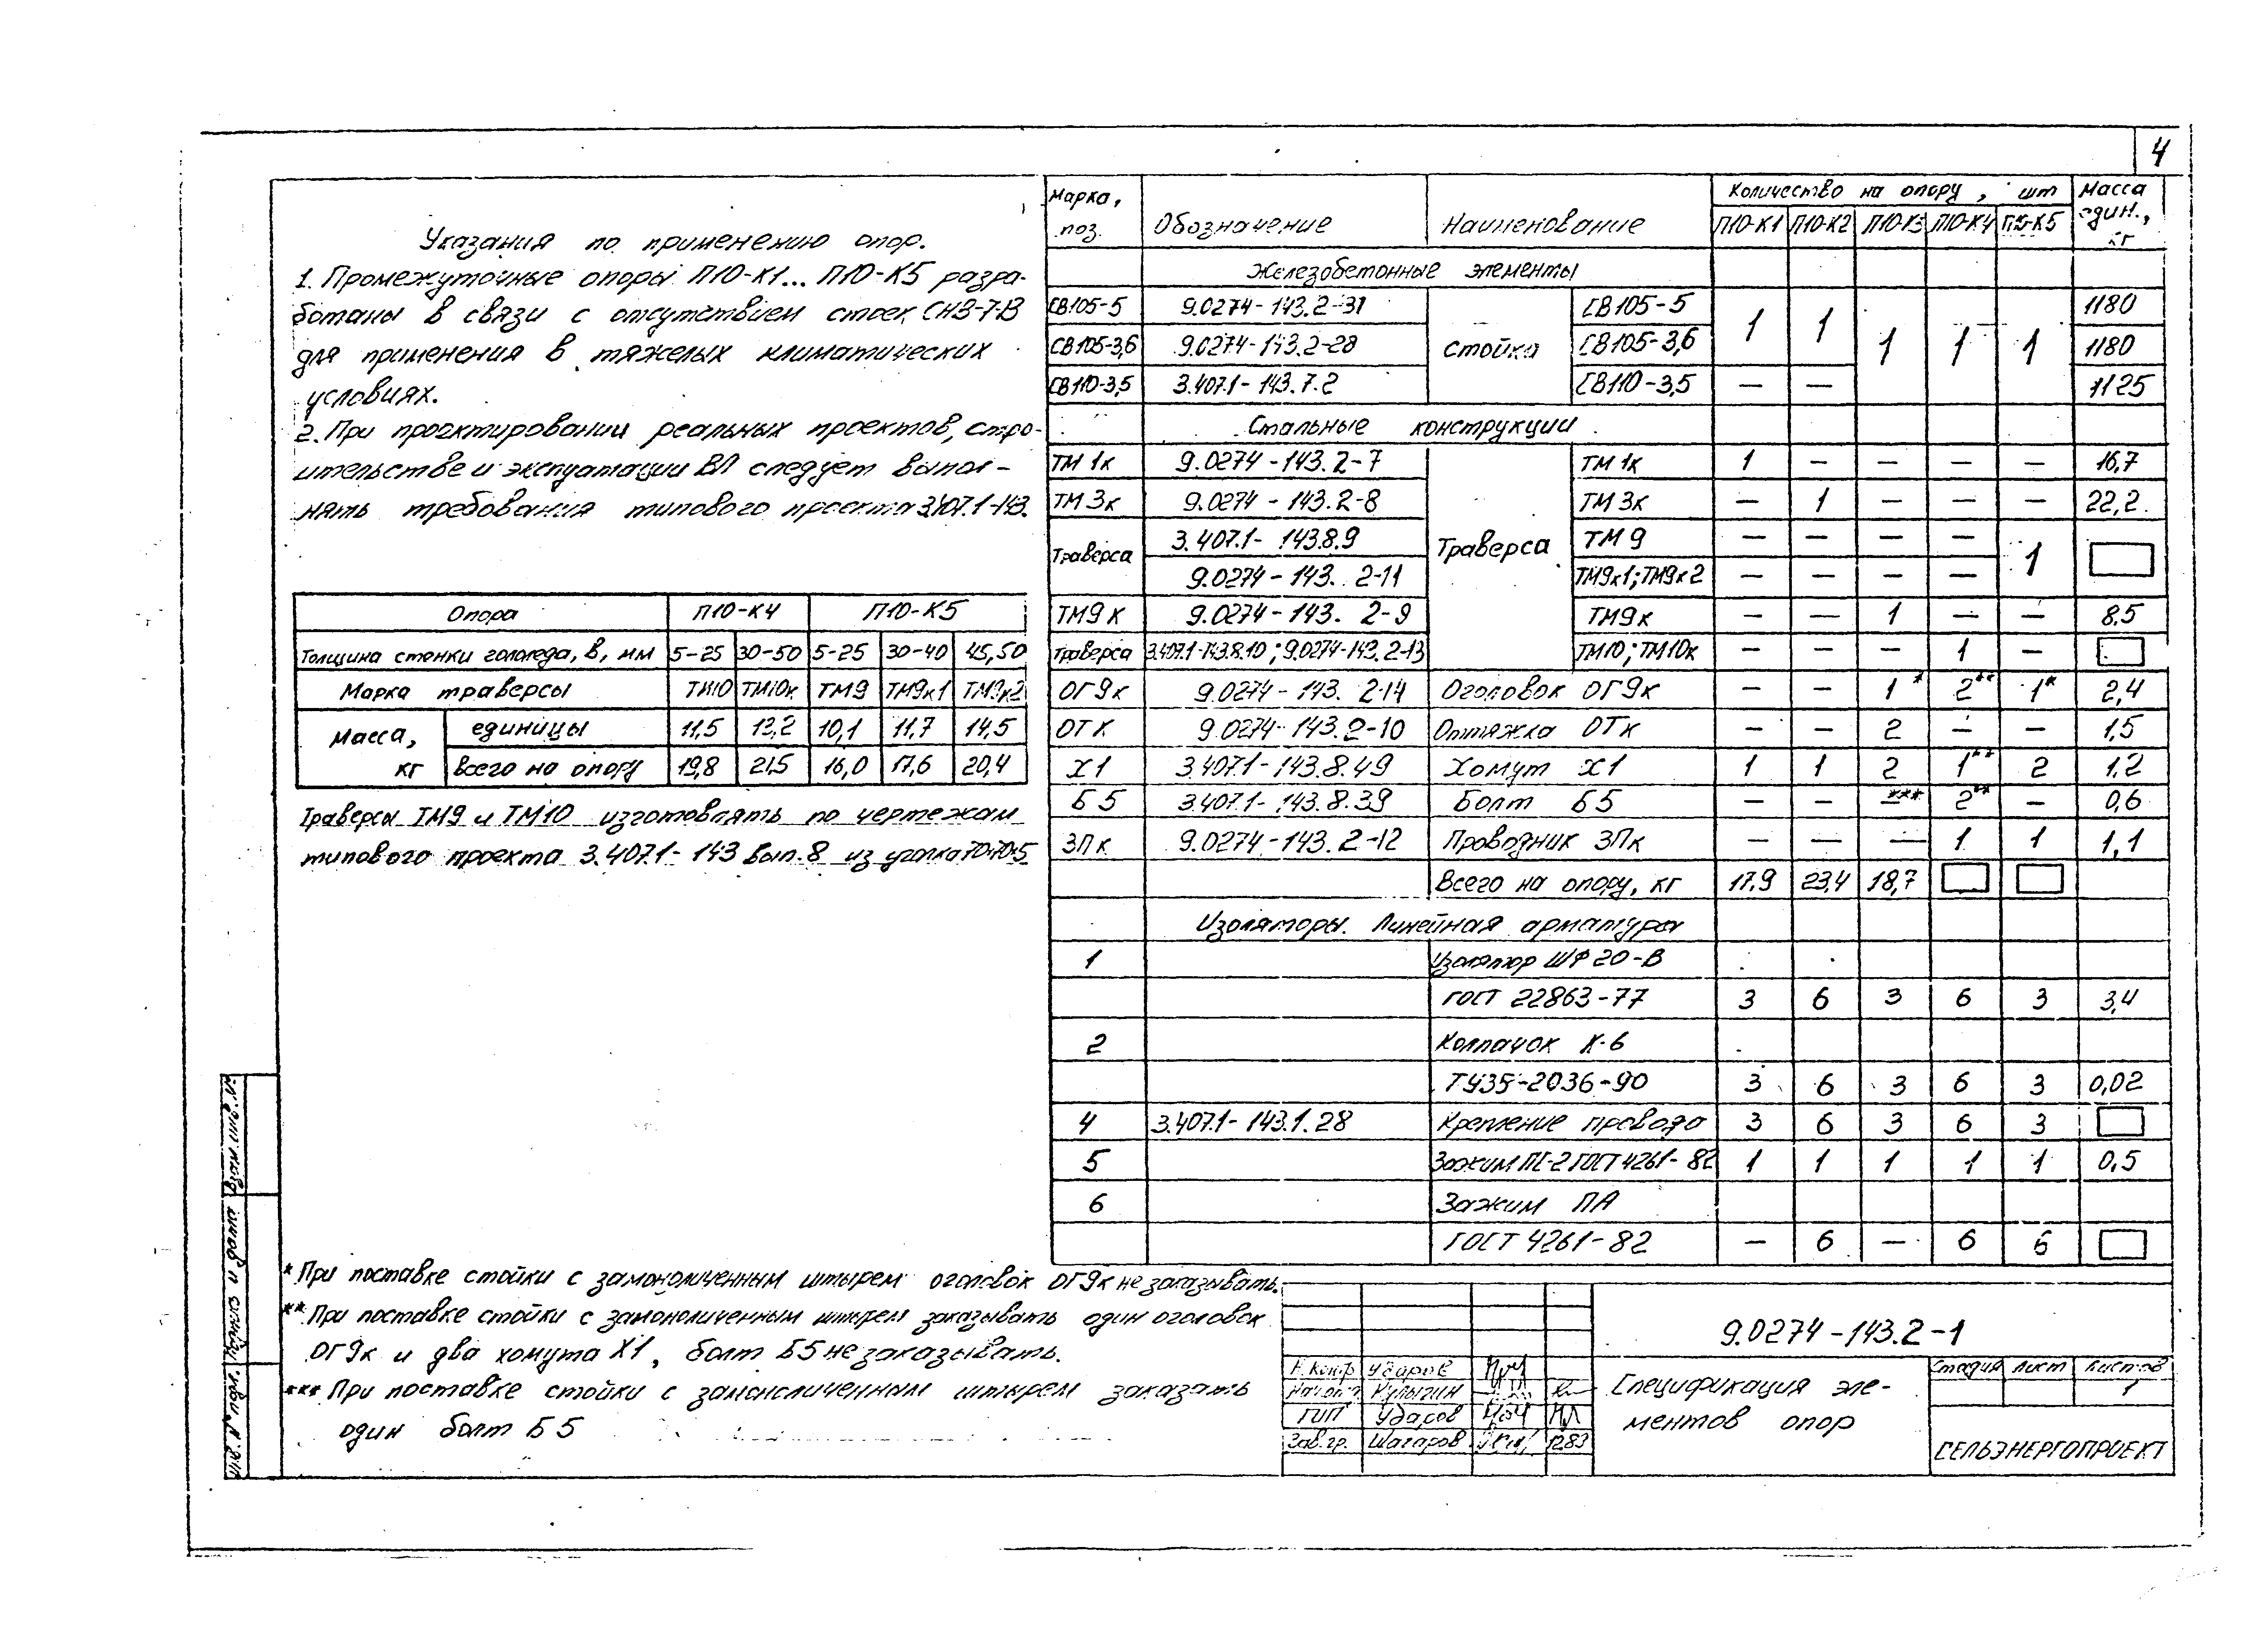 4
Указания по применению опор.
1. Промежуточные опоры П10-К1... П10-К5 разра-
ботаны в связи с отсутствием стоек СНВ-7-13
для применения в тяжелых климатических
условиях.
2. При проектировании реальных проектов, стро-
ительстве и эксплуатации ВЛ следует выпол-
нять требования типового проекта 3.407.1-143.
Опора П10-К4 П10-К5
Толщина стенки гололеда, в, мм 5-25 30-50 5-25 30-40 45,50
Марка траверсы ТМ10 ТМ10к ТМ9 ТМ9к1 ТМ9к2
Масса, кг единицы 11,5 13,2 10,1 11,7 14,5
всего на опору 19,8 21,5 16,0 17,6 20,4
Траверсы ТМ9 и ТМ10 изготовлять по чертежам
типового проекта 3.407.1-143 вып. 8 из уголка 70×70×5
Марка, поз. Обозначение Наименование Количество на опору, шт Масса един., кг
П10-К1 П10-К2 П10-К3 П10-К4 П10-К5
Железобетонные элементы
СВ105-5 9.0274-143.2-31 Стойка СВ105-5 1 1 1 1 1 1180
СВ105-3,6 9.0274-143.2-28 СВ105-3,6 1180
СВ110-3,5 3.407.1-143.7.2 СВ110-3,5 — — 1125
Стальные конструкции
ТМ1к 9.0274-143.2-7 Траверса ТМ1к 1 — — — — 16,7
ТМ3к 9.0274-143.2-8 ТМ3к — 1 — — — 22,2
Траверса 3.407.1-143.8.9 ТМ9 — — — — 1
9.0274-143.2-11 ТМ9к1; ТМ9к2 — — — —
ТМ9к 9.0274-143.2-9 ТМ9к — — 1 — — 8,5
Траверса 3.407.1-143.8.10; 9.0274-143.2-13 ТМ10; ТМ10к — — — 1 —
ОГ9к 9.0274-143.2-14 Оголовок ОГ9к — — 1* 2** 1* 2,4
ОТк 9.0274-143.2-10 Оттяжка ОТк — — 2 — — 1,5
Х1 3.407.1-143.8.49 Хомут Х1 1 1 2 1** 2 1,2
Б5 3.407.1-143.8.39 Болт Б5 — — —*** 2** — 0,6
ЗПк 9.0274-143.2-12 Проводник ЗПк — — — 1 1 1,1
Всего на опору, кг 17,9 23,4 18,7
Изоляторы. Линейная арматура
1 Изолятор ШФ20-В
ГОСТ 22863-77 3 6 3 6 3 3,4
2 Колпачок К-6
ТУ35-2036-90 3 6 3 6 3 0,02
4 3.407.1-143.1.28 Крепление провода 3 6 3 6 3
5 Зажим ПС-2 ГОСТ 4261-82 1 1 1 1 1 0,5
6 Зажим ПА
ГОСТ 4261-82 — 6 — 6 6
* При поставке стойки с замоноличенным штырем оголовок ОГ9к не заказывать.
** При поставке стойки с замоноличенным штырем заказывать один оголовок
ОГ9к и два хомута Х1, болт Б5 не заказывать.
*** При поставке стойки с замоноличенным штырем заказать
один болт Б5
9.0274-143.2-1
Н.контр Ударов
Кулыгин
ГИП Ударов
Зав.гр. Шагаров 12.83
Спецификация эле-
ментов опор
Стадия Лист Листов
1
СЕЛЬЭНЕРГОПРОЕКТ
Инв.№ подл. Подпись и дата